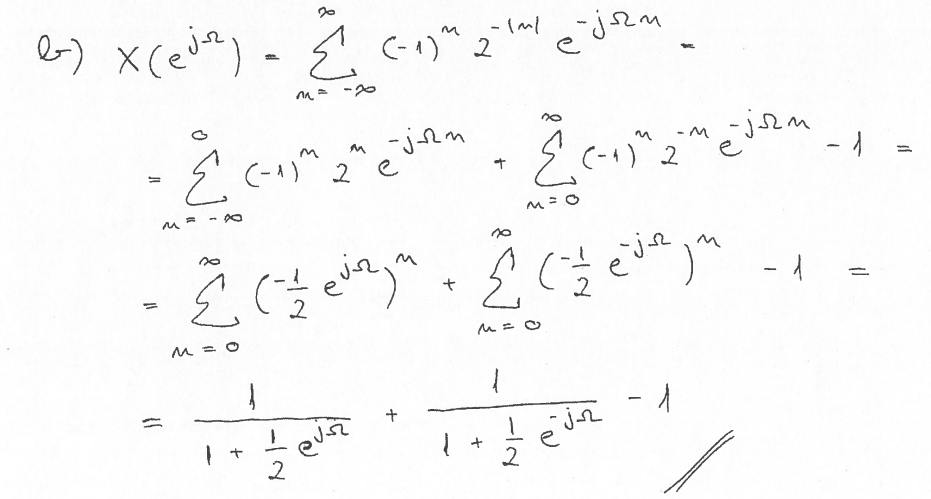 b) X(e^{jΩ}) = \sum_{n=-∞}^{∞} (-1)^n 2^{-|n|} e^{-jΩn} =
= \sum_{n=-∞}^{0} (-1)^n 2^n e^{-jΩn} + \sum_{n=0}^{∞} (-1)^n 2^{-n} e^{-jΩn} - 1 =
= \sum_{n=0}^{∞} (\frac{-1}{2} e^{jΩ})^n + \sum_{n=0}^{∞} (\frac{-1}{2} e^{-jΩ})^n - 1 =
= \frac{1}{1 + \frac{1}{2} e^{jΩ}} + \frac{1}{1 + \frac{1}{2} e^{-jΩ}} - 1